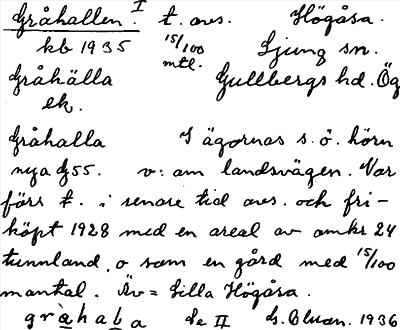 Gråhallen. I t. avs. Högåsa.
kb 1935 15/100 mtl. Ljung sn.
Gråhälla Gullbergs hd. Ög
ek.
Gråhalla I ägornas s. ö. hörn
nya G55. v: am landsvägen. Var
förs t. i senare tid avs. och fri-
köpt 1928 med en areal av omkr 24
tunnland, o som en gård med 15/100
mantal. Äv = Lilla Högåsa.
gràhaba Se II G. 1936